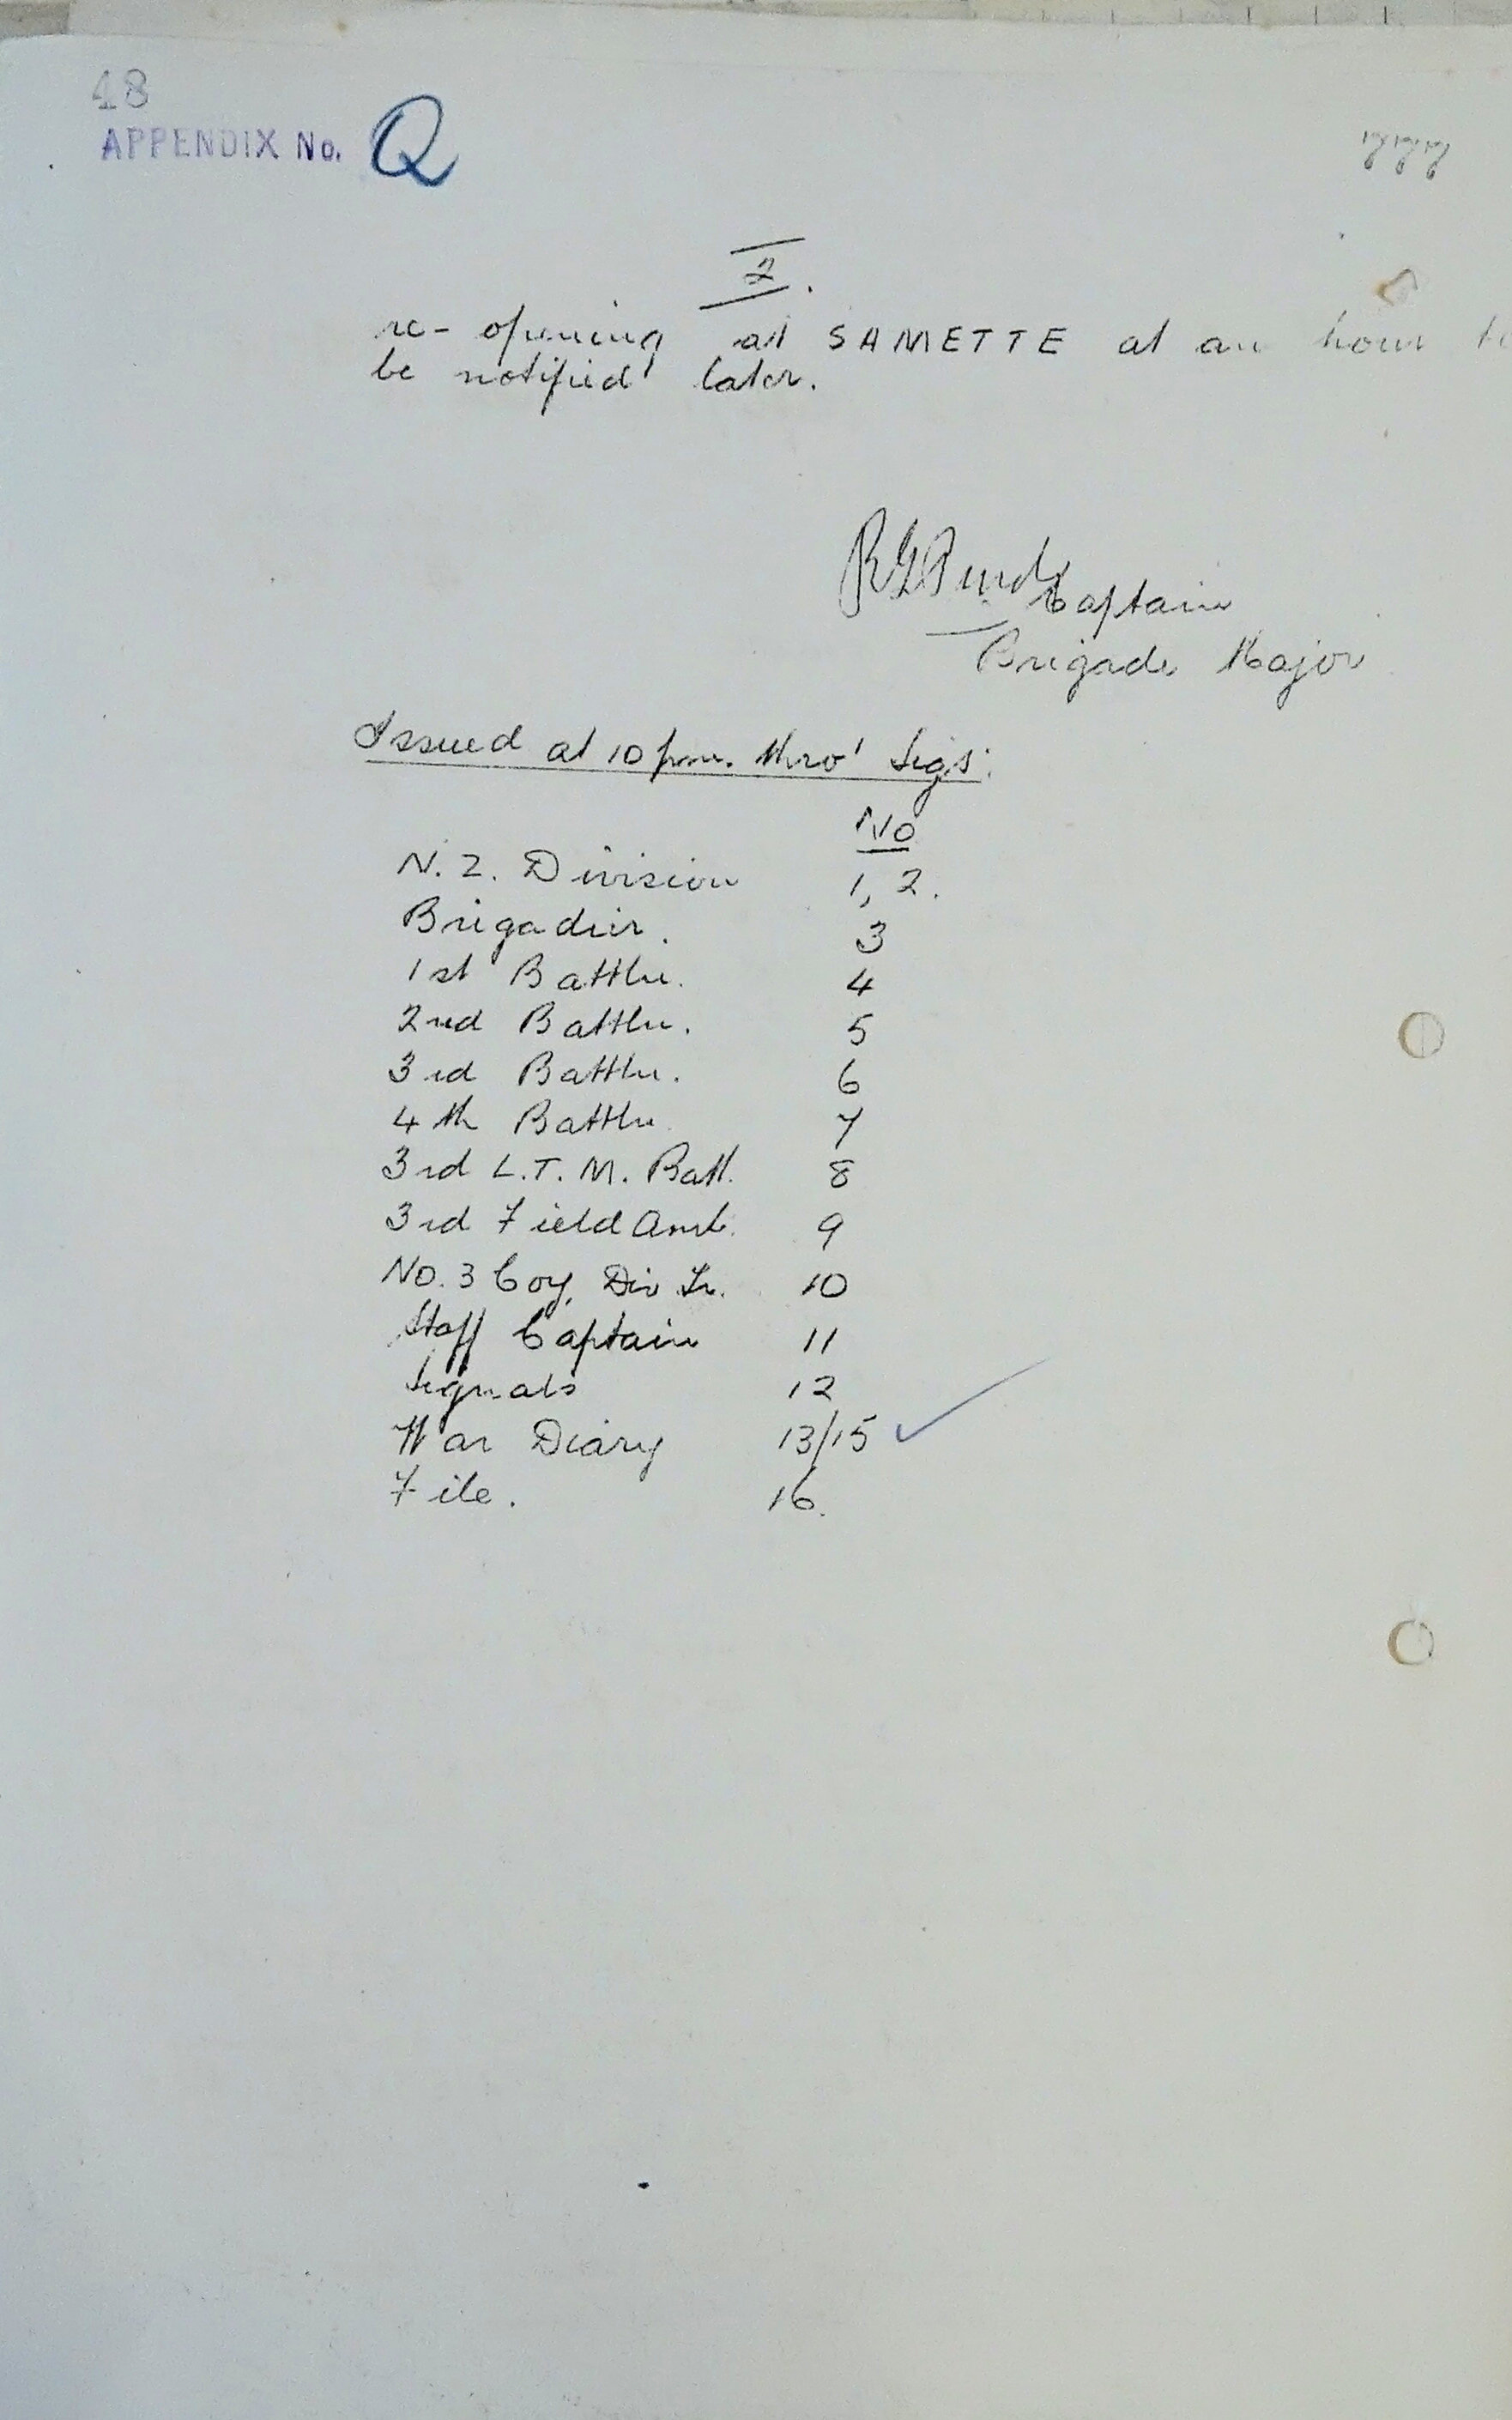 48
APPENDIX No. Q
777
2.
re-opening at SAMETTE at an hour to
be notified later.
Captain
Brigade Major
Issued at 10 pm. thro' Sigs.
No
N.Z. Division 1, 2.
Brigadier. 3
1st Battln. 4
2nd Battln. 5
3rd Battln. 6
4th Battln 7
3rd L.T.M. Batt. 8
3rd Field Amb. 9
No. 3 Coy. Div Tr. 10
Staff Captain 11
Signals 12
War Diary 13/15
File. 16.